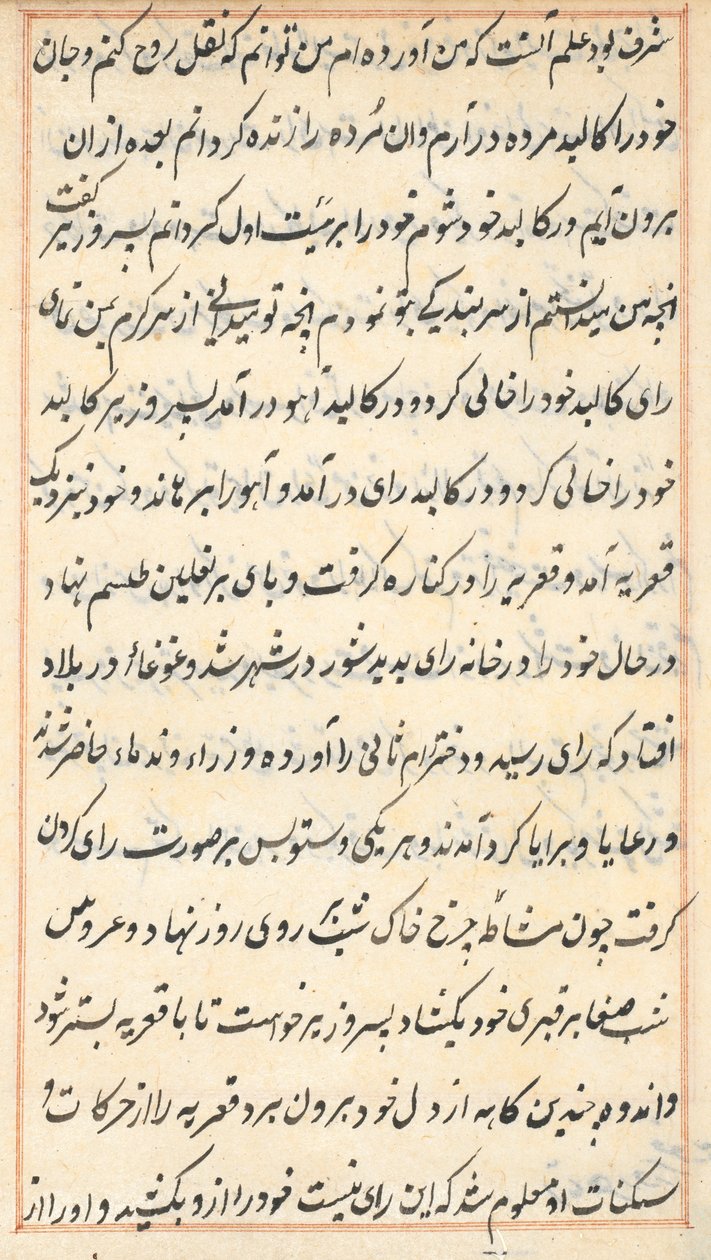 شرف بود علم آنست که من آورده ام من توانم که نقل روح کنم و جان
خود را کالبد مرده در آرم و ان مُرده را زنده کردانم بعده از ان
برون آیم ور کالبد خود شوم خود را بر هیٔت اول کردانم پسر وزیر کفت
انچه من میدانستم از سر بندیکی بتو نمودم انچه تو میدانی از سر کرم بمن نمای
رای کالبد خود را خالی کرد و در کالبد آهو در آمد پسر وزیر کالبد
خود را خالی کرد و در کالبد رای در آمد و آهو را برهاند و خود بنزدیک
قعریه آمد و قعریه را در کناره کرفت و پای بر نعلین طلسم نهاد
در حال خود را در خانه رای بدید شور در شهر شد و غوغاء در بلاد
افتاد که رای رسید و دختر ام ثانی را آورده وزراء و ندماء حاضر شدند
و رعایا و برایا کرد آمدند و هر یکی دستوبس بر صورت رای کردن
کرفت چون مشاطه چرخ خاک شب بر روی روز نهاد و عروس
شب صفا بر قبری خود بکشاد پسر وزیر خواست تا با قعریه بستر شود
و اندوه چندین کاهه از دل خود برون برد قعریه را از حرکات و
سکنات او معلوم شد که این رای نیست خود را ازو بکشید و او را از